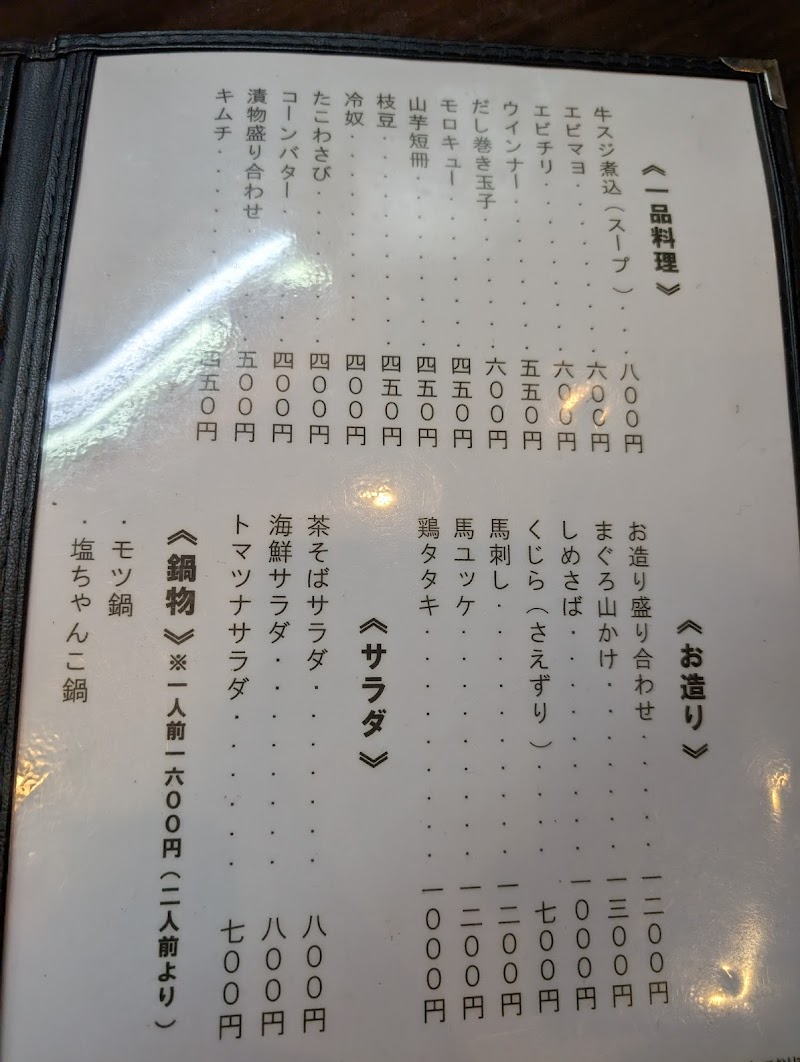 《一品料理》
牛スジ煮込（スープ）・・・八〇〇円
エビマヨ・・・・・・・六〇〇円
エビチリ・・・・・・・六〇〇円
ウインナー・・・・・・五五〇円
だし巻き玉子・・・・・六〇〇円
モロキュー・・・・・・四五〇円
山芋短冊・・・・・・・四五〇円
枝豆・・・・・・・・・四五〇円
冷奴・・・・・・・・・四〇〇円
たこわさび・・・・・・四〇〇円
コーンバター・・・・・四〇〇円
漬物盛り合わせ・・・・五〇〇円
キムチ・・・・・・・・四五〇円
《お造り》
お造り盛り合わせ・・・・一二〇〇円
まぐろ山かけ・・・・・・一三〇〇円
しめさば・・・・・・・・一〇〇〇円
くじら（さえずり）・・・・七〇〇円
馬刺し・・・・・・・・・一二〇〇円
馬ユッケ・・・・・・・・一二〇〇円
鶏タタキ・・・・・・・・一〇〇〇円
《サラダ》
茶そばサラダ・・・・・・・八〇〇円
海鮮サラダ・・・・・・・・八〇〇円
トマツナサラダ・・・・・・七〇〇円
《鍋物》※一人前一六〇〇円（二人前より）
・モツ鍋
・塩ちゃんこ鍋